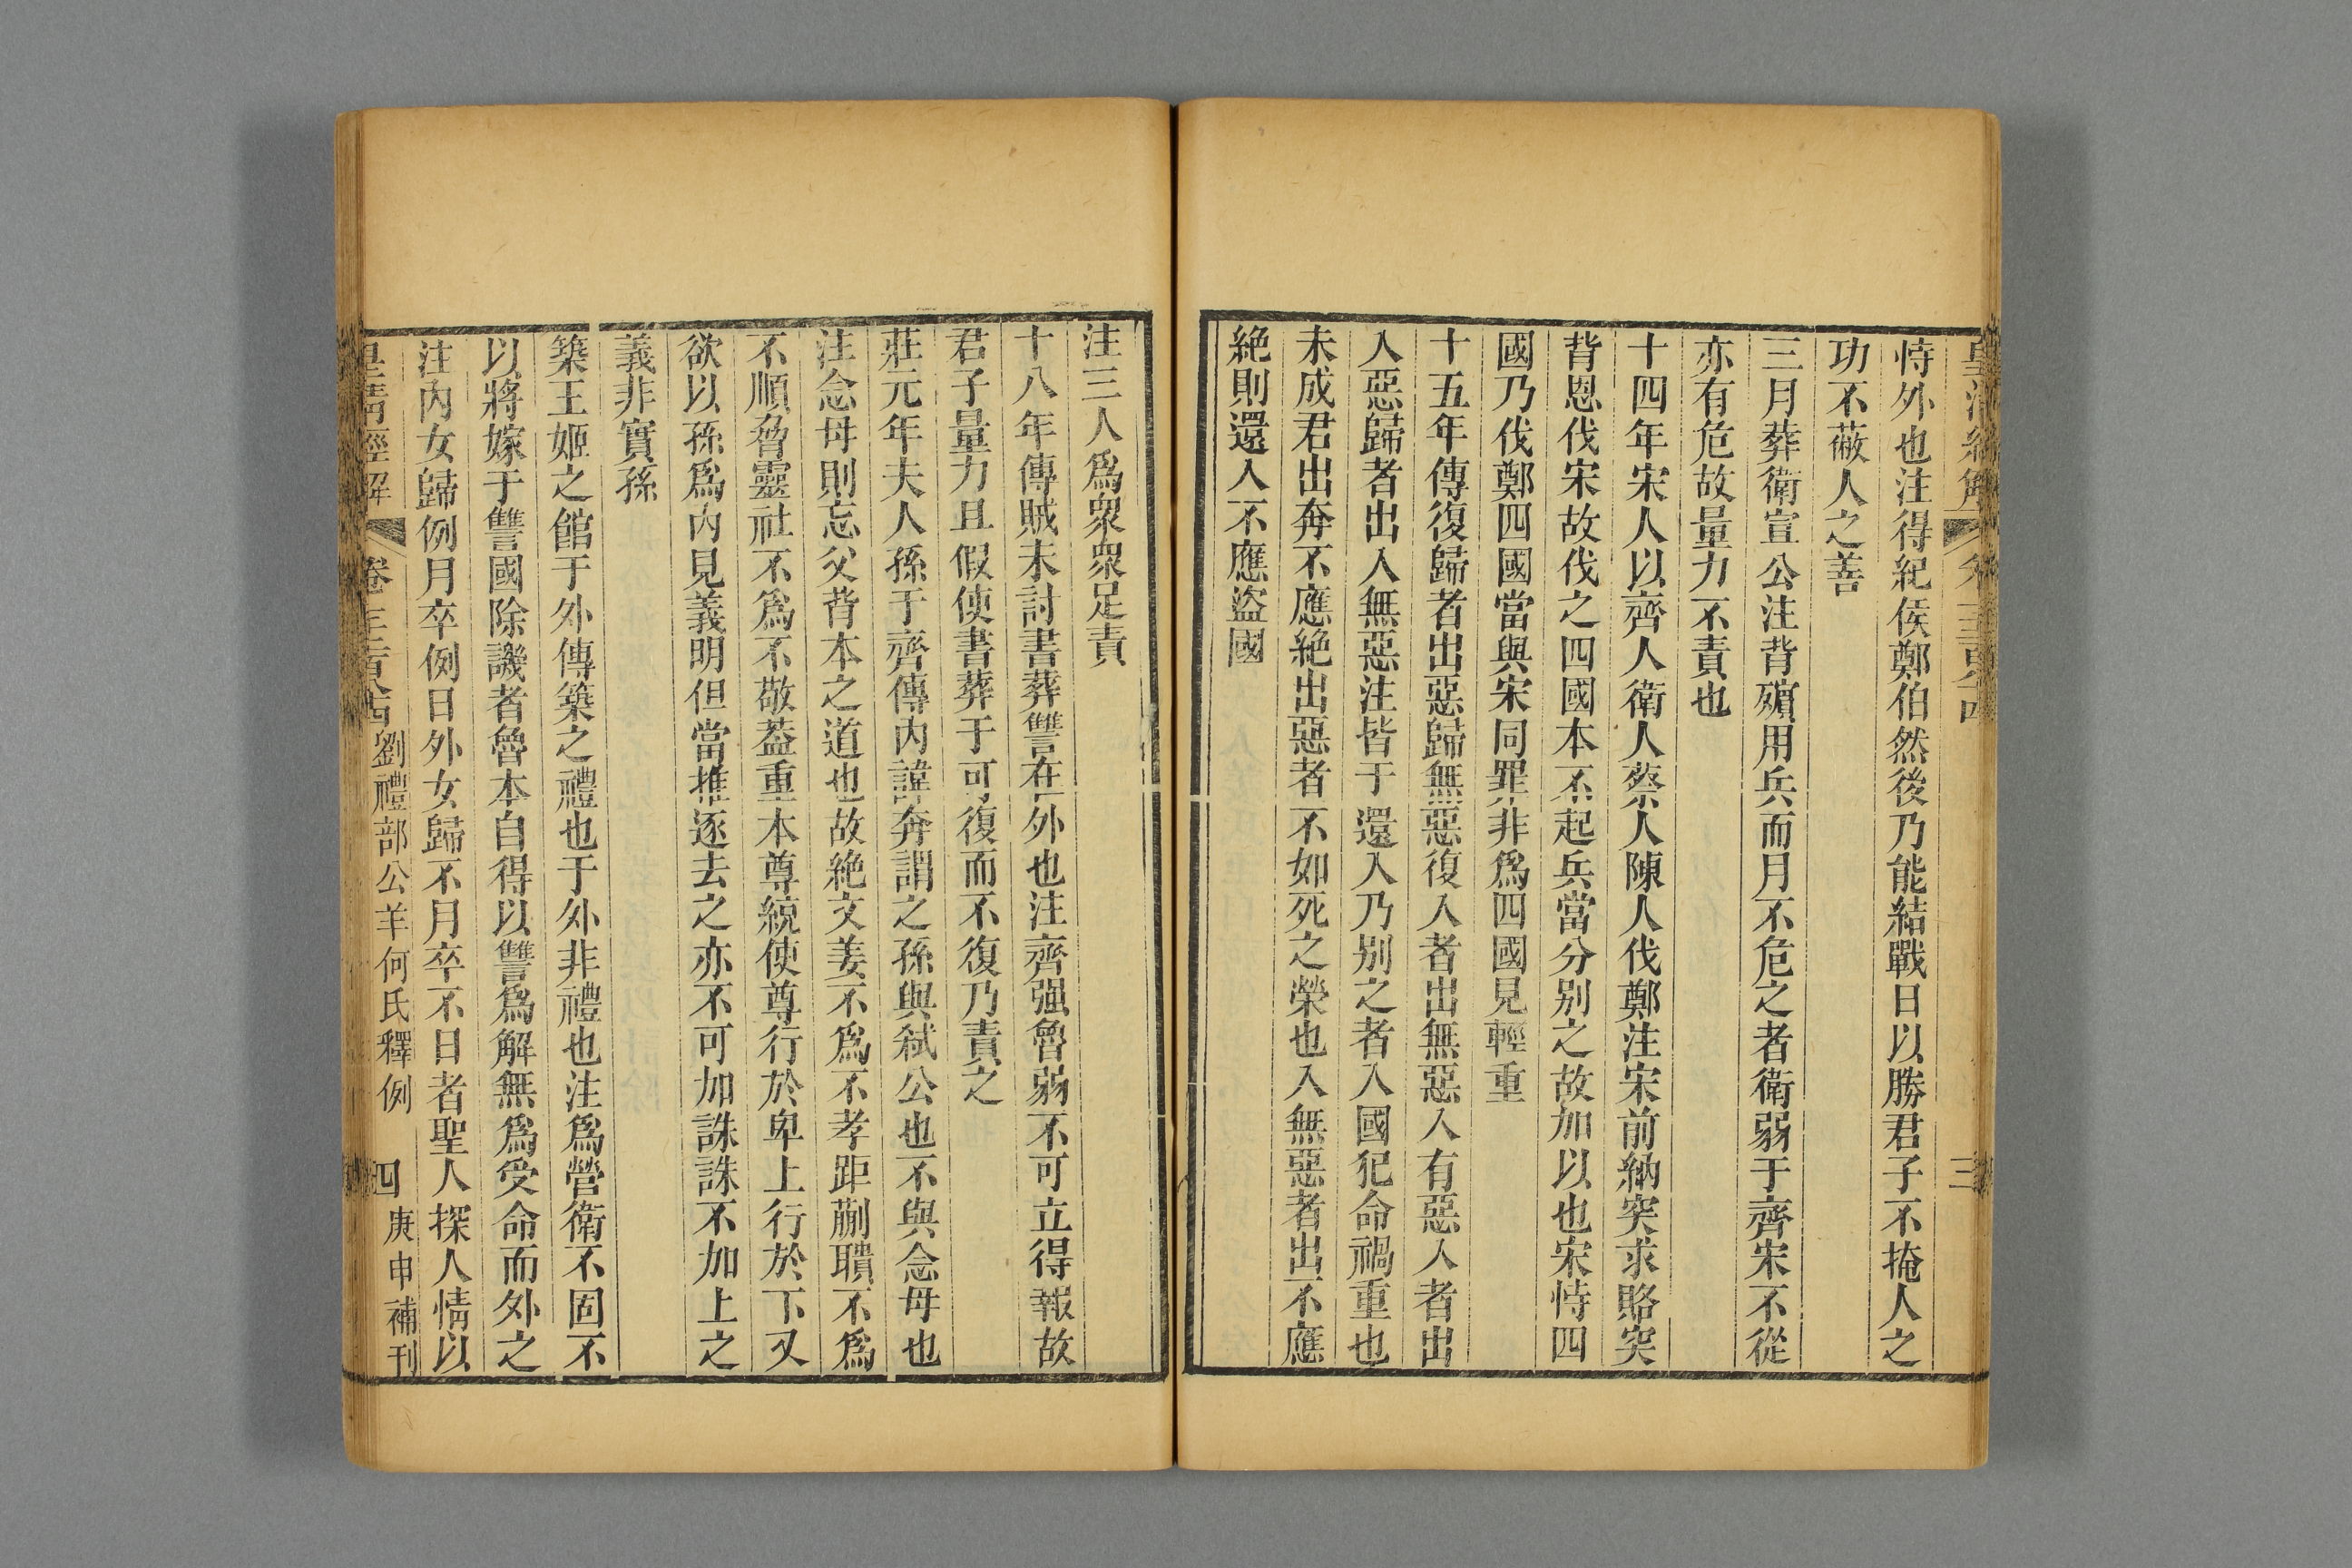 恃外也注得紀侯鄭伯然後乃能結戰日以勝君子不掩人之
功不蔽人之善
三月葬衛宣公注背殯用兵而月不危之者衛弱于齊宋不從
亦有危故量力不責也
十四年宋人以齊人衛人蔡人陳人伐鄭注宋前納突求賂突
背恩伐宋故伐之四國本不起兵當分别之故加以也宋恃四
國乃伐鄭四國當與宋同罪非爲四國見輕重
十五年傳復歸者出惡歸無惡復入者出無惡入有惡入者出
入惡歸者出入無惡注皆于還入乃别之者入國犯命禍重也
未成君出奔不應絶出惡者不如死之榮也入無惡者出不應
絶則還入不應盜國
三
注三人爲衆衆足責
十八年傳賊未討書葬讐在外也注齊强魯弱不可立得報故
君子量力且假使書葬于可復而不復乃責之
莊元年夫人孫于齊傳内諱奔謂之孫與弑公也不與念母也
注念母則忘父背本之道也故絶文姜不爲不孝距蒯聵不爲
不順脅靈社不爲不敬葢重本尊統使尊行於卑上行於下又
欲以孫爲内見義明但當推逐去之亦不可加誅誅不加上之
義非實孫
築王姬之館于外傳築之禮也于外非禮也注爲營衛不固不
以將嫁于讐國除譏者魯本自得以讐爲解無爲受命而外之
注内女歸例月卒例日外女歸不月卒不日者聖人探人情以
皇清經解 卷 劉禮部公羊何氏釋例 四 庚申補刊